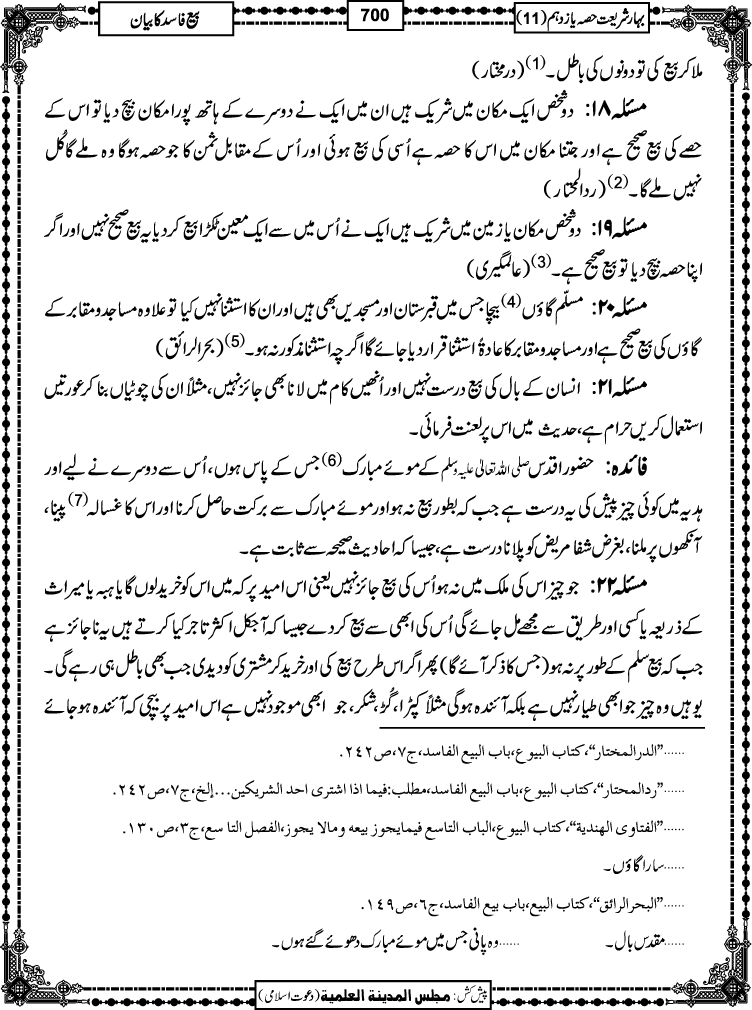 بہار شریعت حصہ یازدہم (11)
700
بیع فاسد کا بیان
ملا کر بیع کی تو دونوں کی باطل۔(1) (درمختار)
مسئلہ ۱۸: دو شخص ایک مکان میں شریک ہیں ان میں ایک نے دوسرے کے ہاتھ پورا مکان بیچ دیا تو اس کے
حصے کی بیع صحیح ہے اور جتنا مکان میں اس کا حصہ ہے اُسی کی بیع ہوئی اور اُس کے مقابل ثمن کا جو حصہ ہوگا وہ ملے گا کُل
نہیں ملے گا۔(2) (ردالمحتار)
مسئلہ ۱۹: دو شخص مکان یا زمین میں شریک ہیں ایک نے اُس میں سے ایک معین ٹکڑا بیع کر دیا یہ بیع صحیح نہیں اور اگر
اپنا حصہ بیچ دیا تو بیع صحیح ہے۔(3) (عالمگیری)
مسئلہ ۲۰: مسلّم گاؤں(4) بیچا جس میں قبرستان اور مسجدیں بھی ہیں اور ان کا استثنا نہیں کیا تو علاوہ مساجد و مقابر کے
گاؤں کی بیع صحیح ہے اور مساجد و مقابر کا عادۃً استثنا قرار دیا جائے گا اگرچہ استثنا مذکور نہ ہو۔(5) (بحرالرائق)
مسئلہ ۲۱: انسان کے بال کی بیع درست نہیں اور اُنھیں کام میں لانا بھی جائز نہیں، مثلاً ان کی چوٹیاں بنا کر عورتیں
استعمال کریں حرام ہے، حدیث میں اس پر لعنت فرمائی۔
فائدہ: حضور اقدس صلی اللہ تعالیٰ علیہ وسلم کے موئے مبارک(6) جس کے پاس ہوں، اُس سے دوسرے نے لیے اور
ہدیہ میں کوئی چیز پیش کی یہ درست ہے جب کہ بطور بیع نہ ہو اور موئے مبارک سے برکت حاصل کرنا اور اس کا غسالہ(7) پینا،
آنکھوں پر ملنا، بغرض شفا مریض کو پلانا درست ہے، جیسا کہ احادیث صحیحہ سے ثابت ہے۔
مسئلہ ۲۲: جو چیز اس کی ملک میں نہ ہو اُس کی بیع جائز نہیں یعنی اس امید پر کہ میں اس کو خرید لوں گا یا ہبہ یا میراث
کے ذریعہ یا کسی اور طریق سے مجھے مل جائے گی اُس کی ابھی سے بیع کر دے جیسا کہ آجکل اکثر تاجر کیا کرتے ہیں یہ ناجائز ہے
جب کہ بیع سلم کے طور پر نہ ہو (جس کا ذکر آئے گا) پھر اگر اس طرح بیع کی اور خرید کر مشتری کو دیدی جب بھی باطل ہی رہے گی۔
یوہیں وہ چیز جو ابھی طیار نہیں ہے بلکہ آئندہ ہوگی مثلاً کپڑا، گُڑ، شکر، جو ابھی موجود نہیں ہے اس امید پر بیچی کہ آئندہ ہو جائے
......”الدرالمختار“، کتاب البیوع، باب البیع الفاسد، ج۷، ص۲٤۲.
......”ردالمحتار“، کتاب البیوع، باب البیع الفاسد، مطلب: فیما اذا اشتری احد الشریکین...إلخ، ج۷، ص۲٤۲.
......”الفتاوی الھندیة“، کتاب البیوع، الباب التاسع فیمایجوز بیعه ومالا یجوز، الفصل التاسع، ج۳، ص۱۳۰.
......سارا گاؤں۔
......”البحرالرائق“، کتاب البیع، باب بیع الفاسد، ج٦، ص۱٤۹.
......مقدس بال۔ ......وہ پانی جس میں موئے مبارک دھوئے گئے ہوں۔
پیش کش: مجلس المدینة العلمیة (دعوت اسلامی)